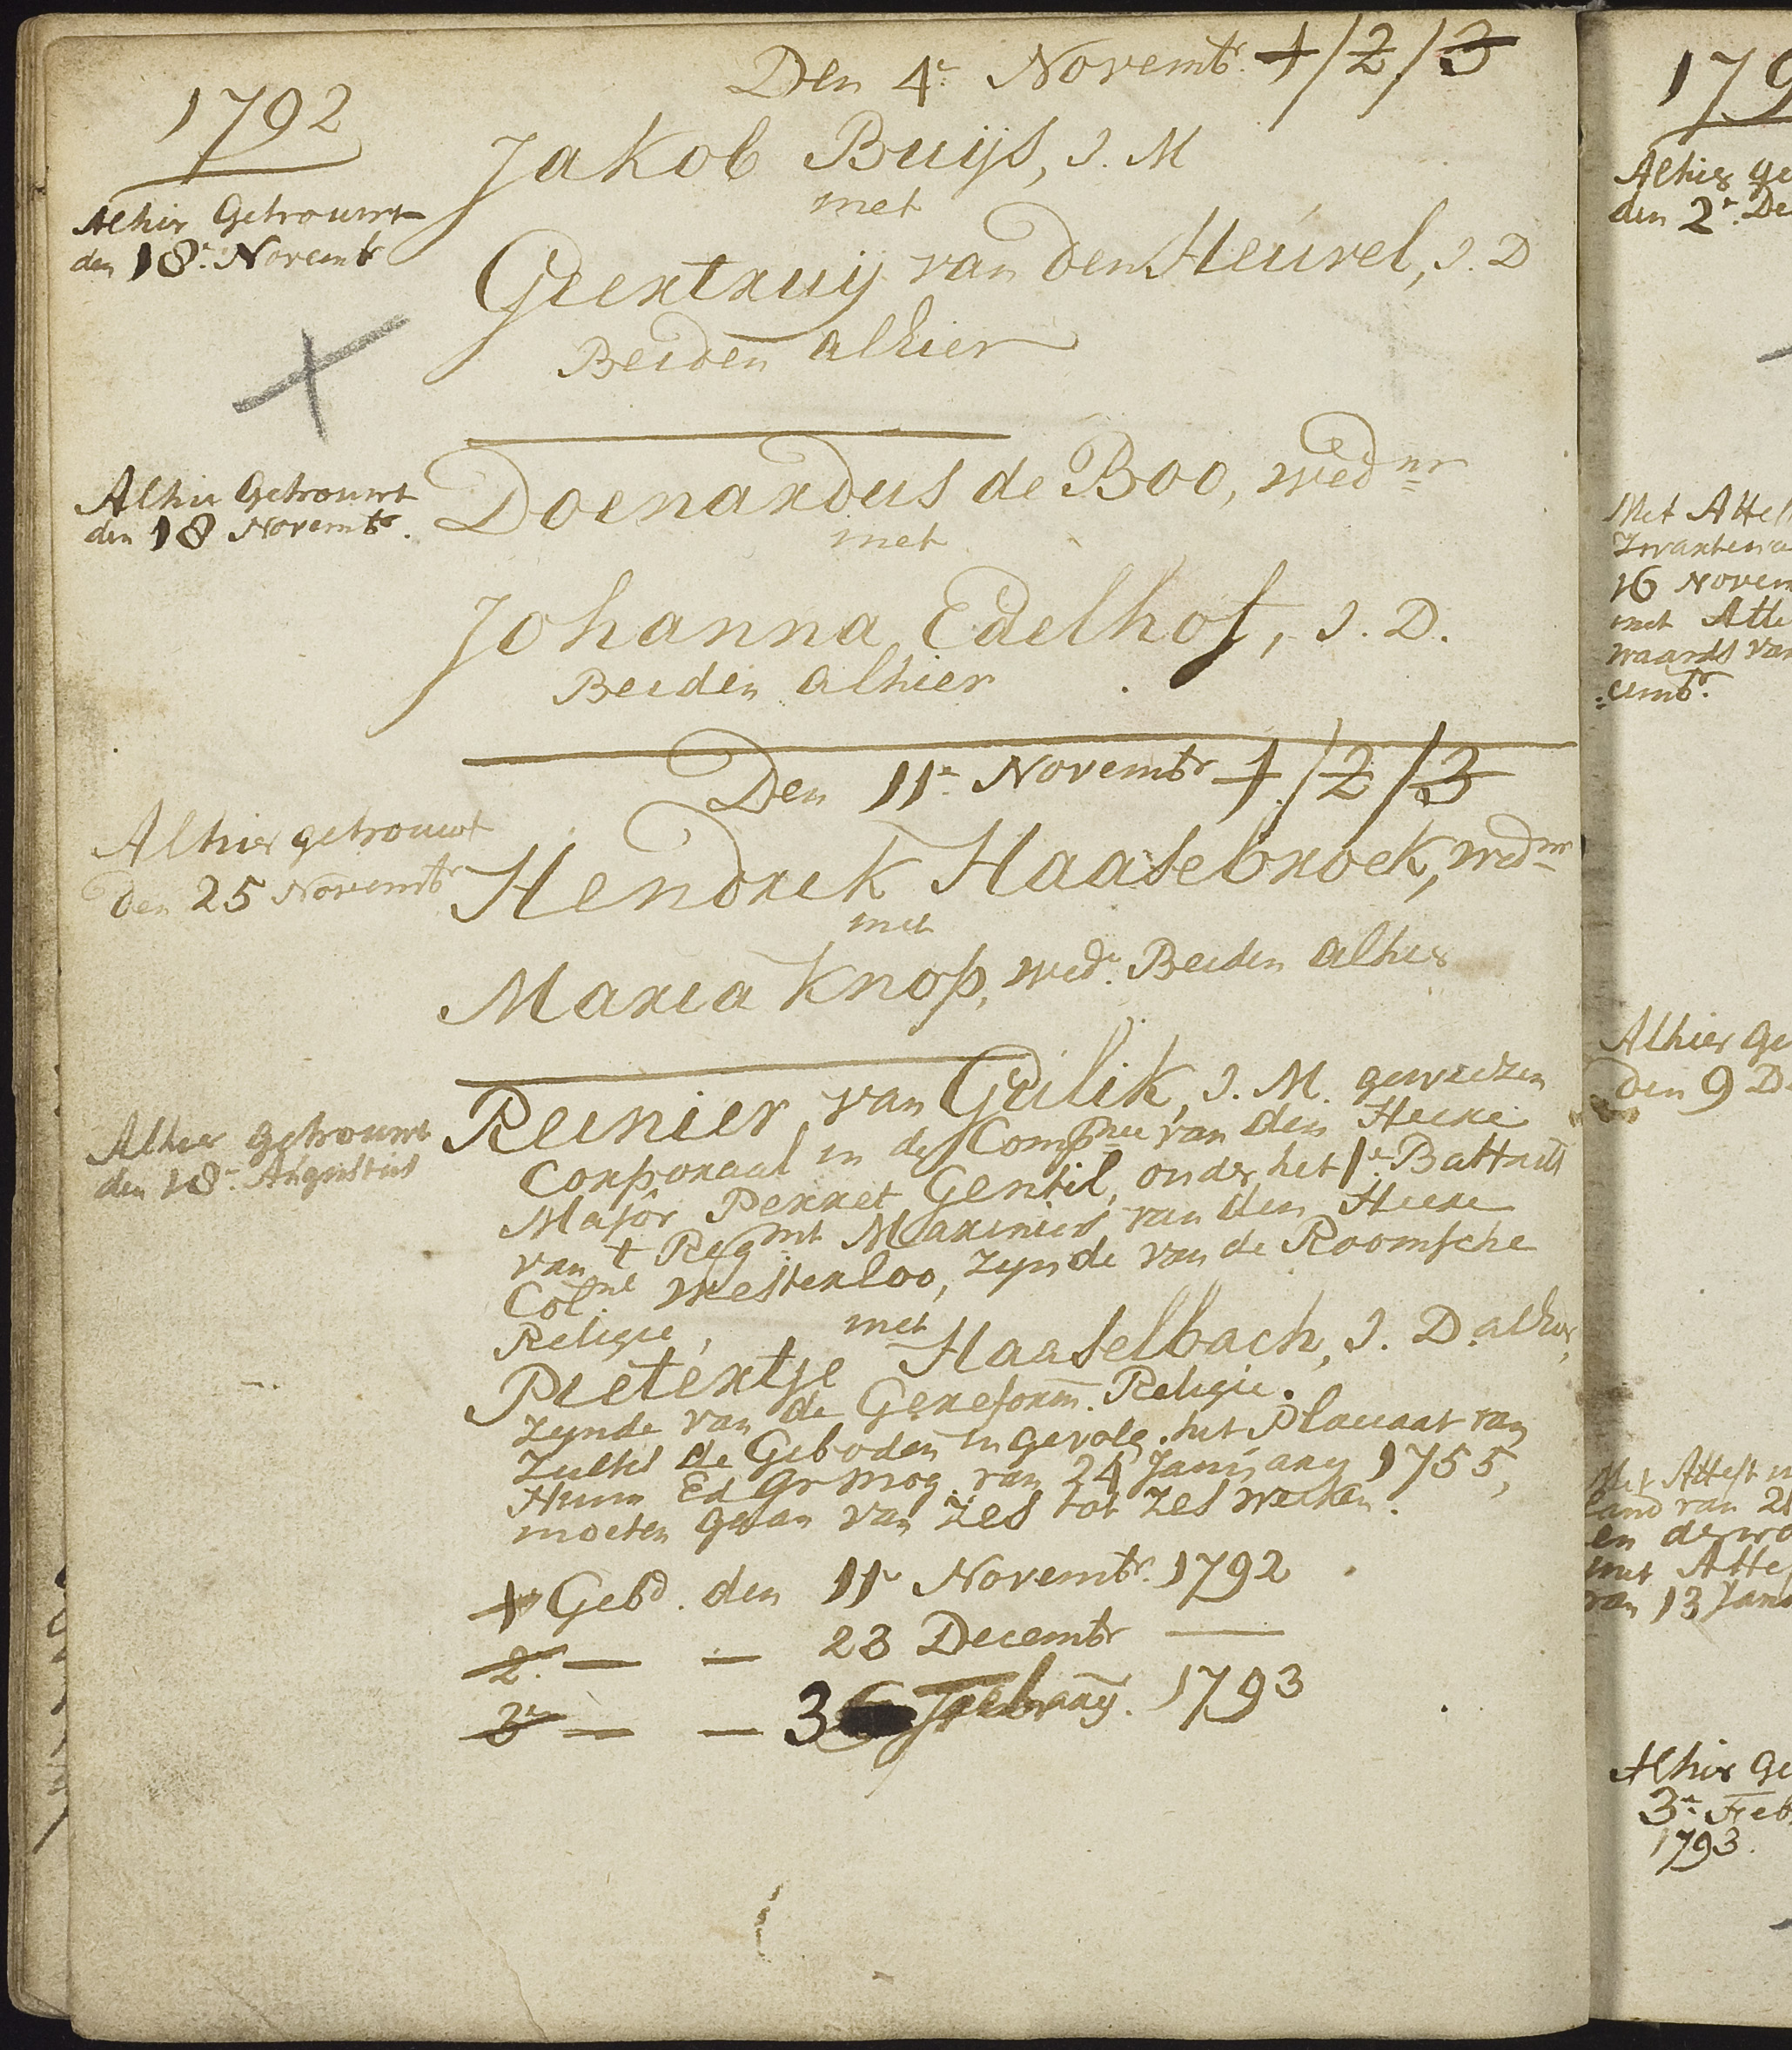 1792
Den 4e Novembr. 1/2/3
Alhier Getrouwt
den 18e. Novembr
Jakob Buijs, J. M
met
Geertruij van den Heúvel, J. D
Beiden alhier
Alhier Getrouwt
den 18 Novembr.
Doenardus de Boo, wednr
met
Johanna Edelhof, J. D.
Beiden alhier
Den 11e Novembr 1/2/3
Alhier getrouwt
den 25 Novembr
Hendrik Haasebroek, wednr
met
Maria Knop, wede. Beiden alhier
Alhier getrouwt
den 18e. Augustus
Reinier van Gulik, J. M. gewezen
Corporaal in de Compnie van den Heere
Majôr Perret Gentil, onder het 1e. Battails
van t Regmt Mariniers van den Heere
Colnel Westerloo, zynde van de Roomsche
Religie, met
Pietertje Haaselbach, J. D. alhier,
zynde van de Gereform. Religie.
Zullds de Geboden in gevolg. het Placaat van
Hunn Ed Gr Mog. van 24 January 1755,
moeten gaan van zes tot zes weeken.
1e Gebd. den 11e Novembr. 1792
2e. — — 23 Decembr —
3e — — 3 February. 1793
179
Alhier ge
den 2e. De
Met Attes
Zwartewa
16 Novem
met Atte
waards van
:cembr.
Alhier Ge
den 9 D
Met Attest
land van 2
en derwa
met Attes
van 13 Janu
Alhier Ge
3e. Feb
1793.